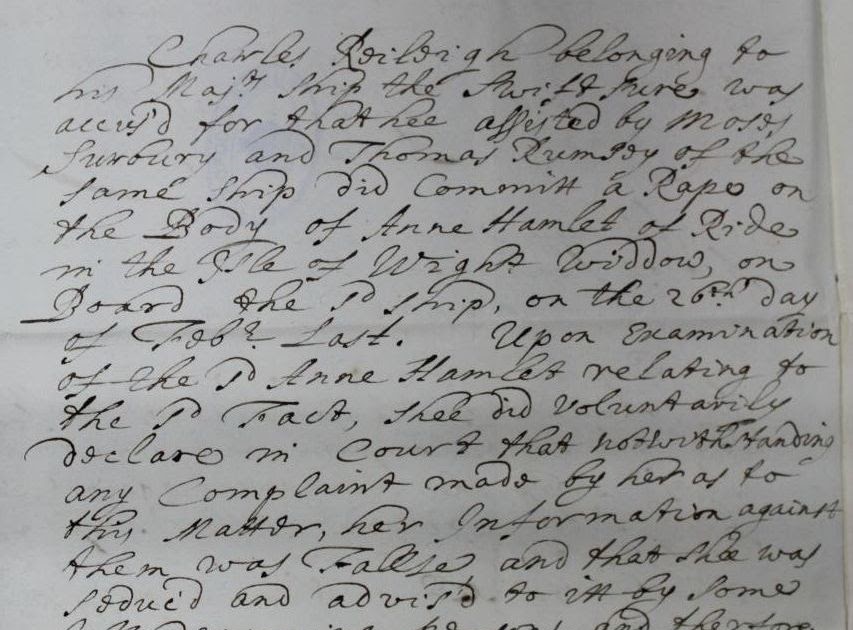 Charles Reileigh belonging to
his Maj.ts ship the Swiftsure was
accus'd for that hee assisted by Moses
Surbury and Thomas Rumsey of the
same ship did Committ a Rape on
the Body of Anne Hamlet of Ride
in the Isle of Wight Widdow, on
Board the sd ship, on the 26th day
of Febr. Last. Upon Examination
of the sd Anne Hamlet relating to
the sd Fact, shee did voluntarily
declare in Court that notwithstanding
any Complaint made by her as to
this Matter, her Information against
them was Fallse, and that shee was
seduc'd and advis'd to itt by some
and therfore